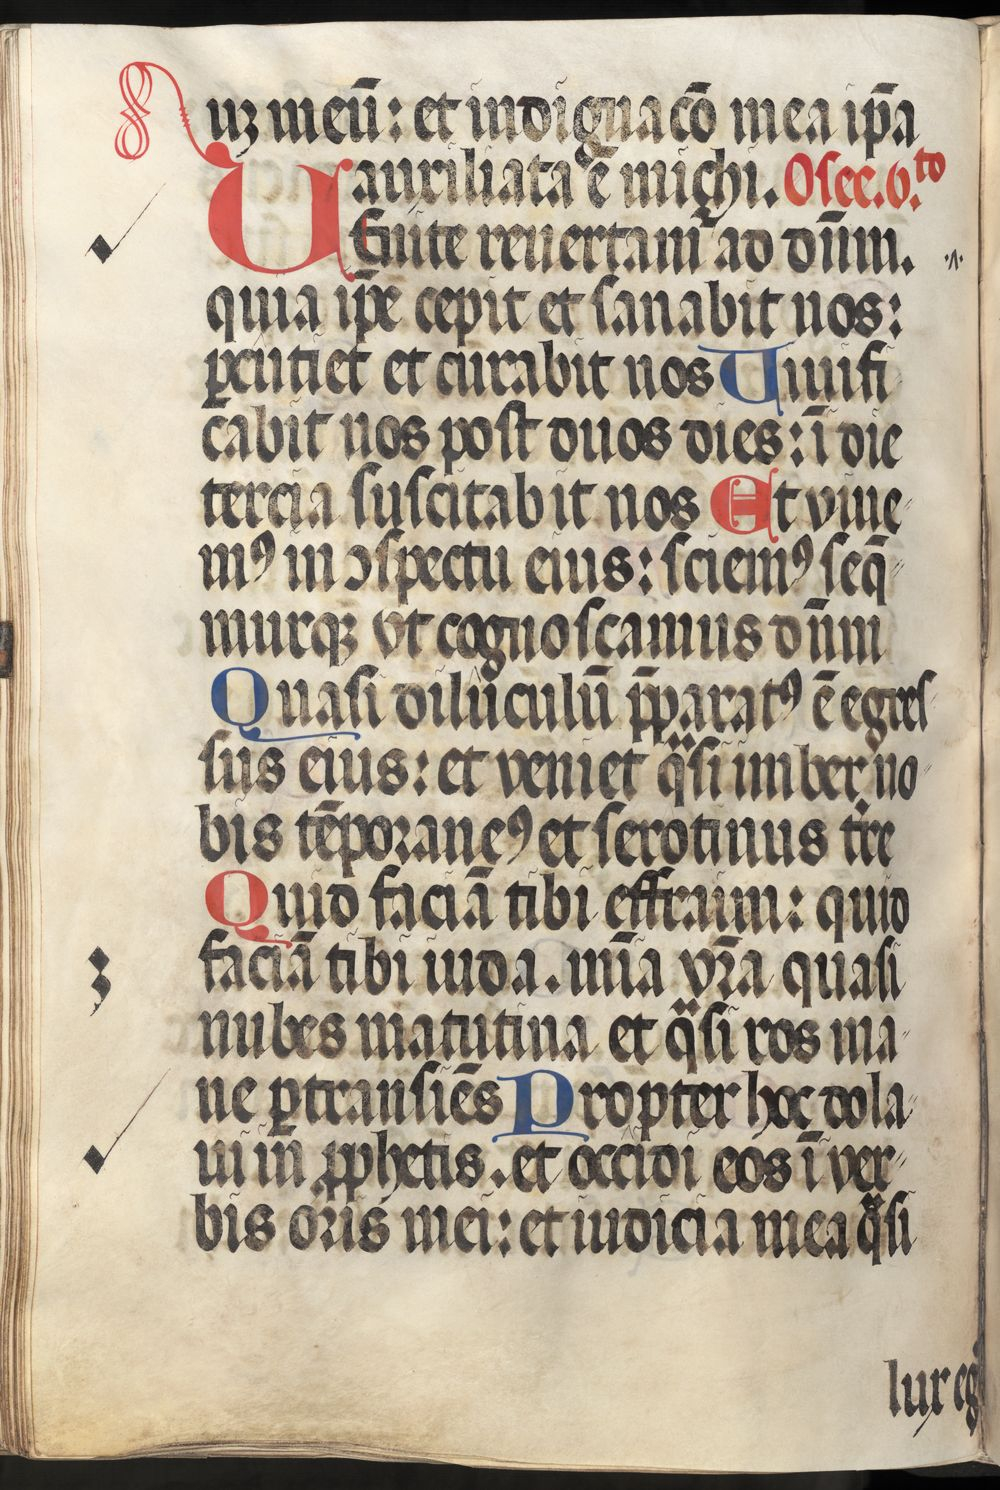 uʒ meū: et indignacō mea ip̄a
auxiliata ē michi. Osee.6.to
UEnite reuertam̄ ad dn̄m.
quia ip̄e cepit et sanabit nos:
ꝑcutiet et curabit nos Uiuifi
cabit nos post duos dies: ī die
tercia suscitabit nos Et viue
mꝰ in ↄspectu eius: sciemꝰ seq̄
murqꝫ vt cognoscamus dn̄m
Quasi diluculū p̄paratꝰ ē egres
sus eius: et veniet qͣsi imber no
bis tēporaneꝰ et serotinus tr̄e
Quid faciā tibi effraim: quid
faciā tibi iuda. mīa vr̄a quasi
nubes matutina et qͣsi ros ma
ne ꝑtransiēs Propter hoc dola
ui in ꝓphetis. et occidi eos ī ver
bis oris mei: et iudicia mea qͣsi
lux eg